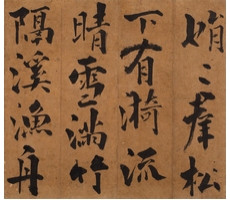 娟〻羣松
下有漪流
晴雪滿竹
隔溪漁舟